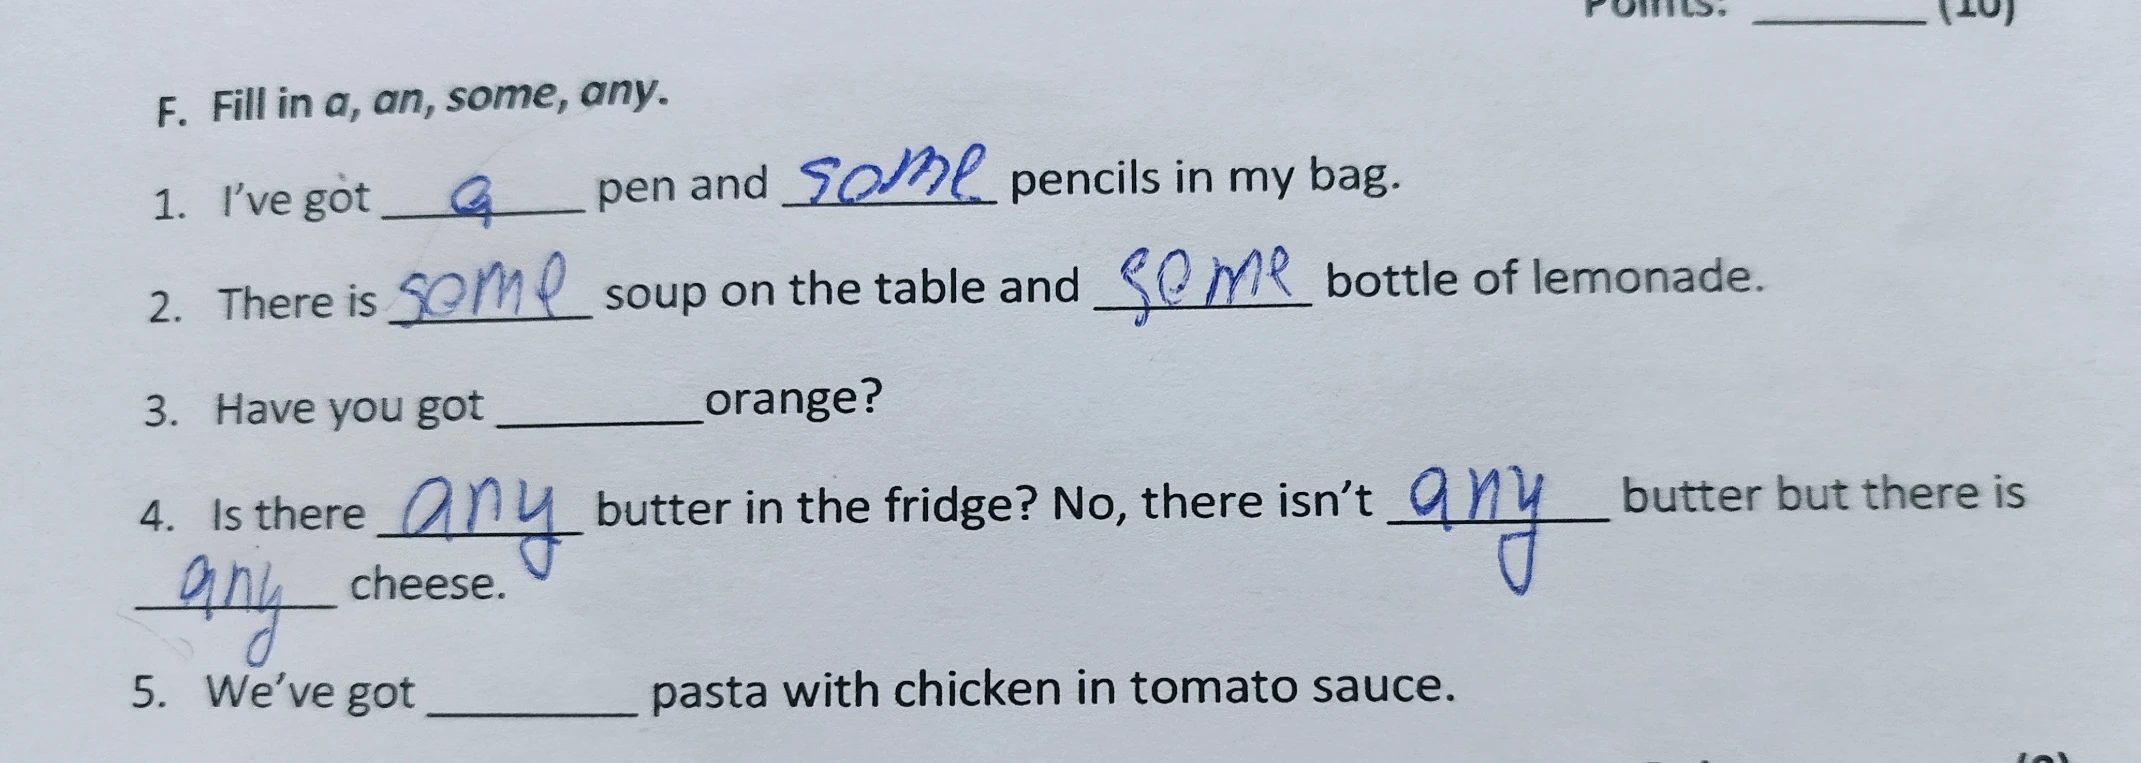 Points: ________ (10)
F. Fill in a, an, some, any.
1. I've got a pen and some pencils in my bag.
2. There is some soup on the table and some bottle of lemonade.
3. Have you got ________ orange?
4. Is there any butter in the fridge? No, there isn't any butter but there is
any cheese.
5. We've got ________ pasta with chicken in tomato sauce.